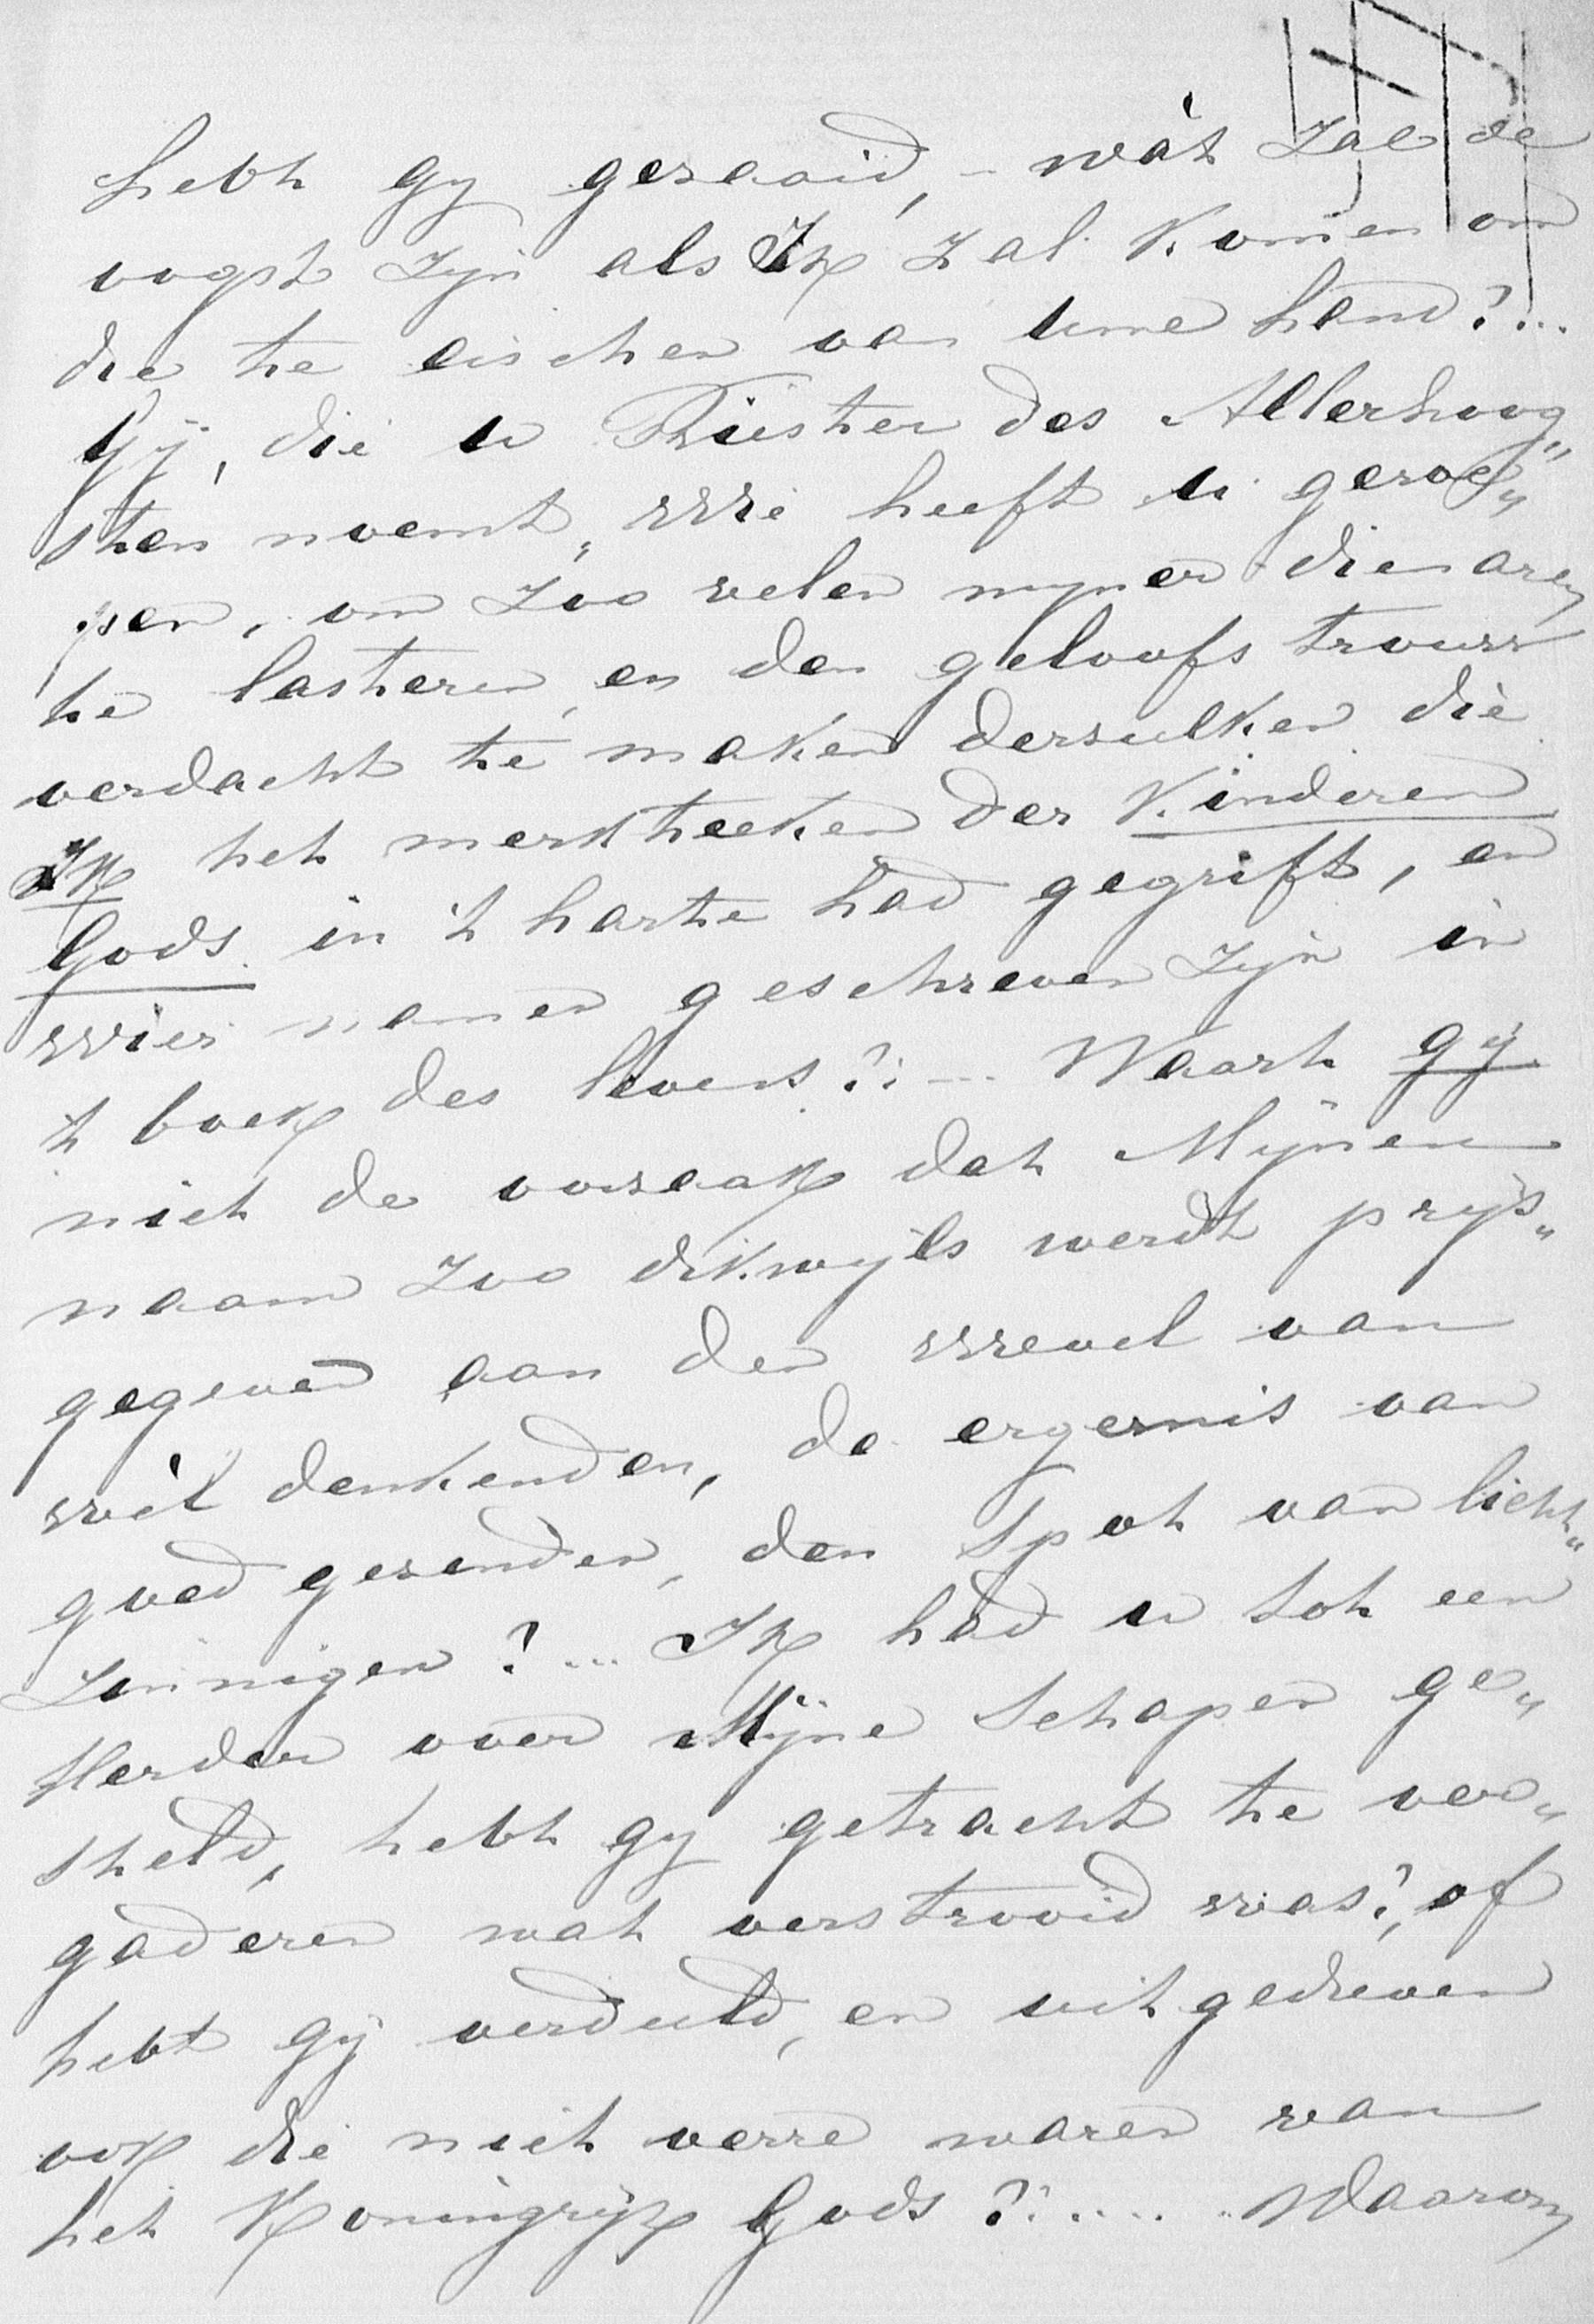 hebt gy gezaaid, – wàt zal de
oogst zyn als Ik zal komen om
die te eischen van uwe hand?...
Gÿ, die u Priester des Allerhoog„
sten noemt, wie heeft u geroe„
pen, om zoo velen myner dienaren
te lasteren en den geloofs trouw
verdacht te maken derzulken die
Ik het merkteeken der Kinderen
Gods in 't harte had gegrift, en
wier namen geschreven zyn in
't boek des levens?... Waart gÿ
niet de oorzaak dat Mÿnen
naam zoo dikwyls werdt prÿs„
gegeven aan den wrevel van
wèl denkenden, de ergernis van
goed gezenden, den Spot van licht„
zinnigen?... Ik had u tot een
Herder over Mÿne Schapen ge„
steld, hebt gy getracht te ver„
gaderen wat verstrooid was?, of
hebt gÿ verduld, en uitgedreven
ook die niet verre waren van
het Koningrÿk Gods?..... Waarom